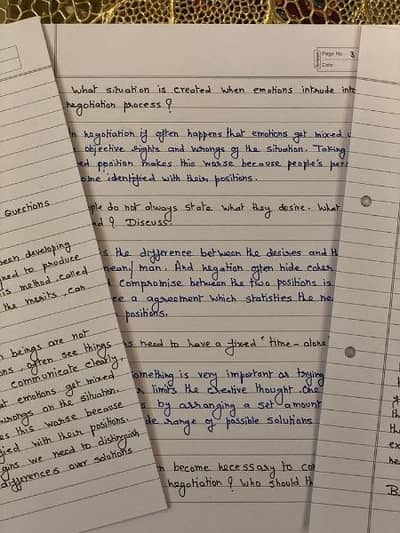 Page No. 3
Date
What situation is created when emotions intrude into
negotiation process?
In negotiation it often happens that emotions get mixed
objective rights and wrongs of the situation. Taking
position makes this worse because people's
identified with their positions.
do not always state what they desire. What
? Discuss.
is the difference between the desires and
mean / man. And negation often hide
compromise between the two positions is
a agreement which statisties the
positions.
need to have a fixed 'time - alone
something is very important as trying
limits the creative thought. One
by arranging a set amount
range of possible solutions
become necessary to
negotiation? Who should
Questions
been developing
to produce
is method, called
the merits, can
beings are not
often see things
communicate clearly.
emotions get mixed
wrongs on the situation.
this worse because
with their positions.
we need to distinguish
differences over solutions